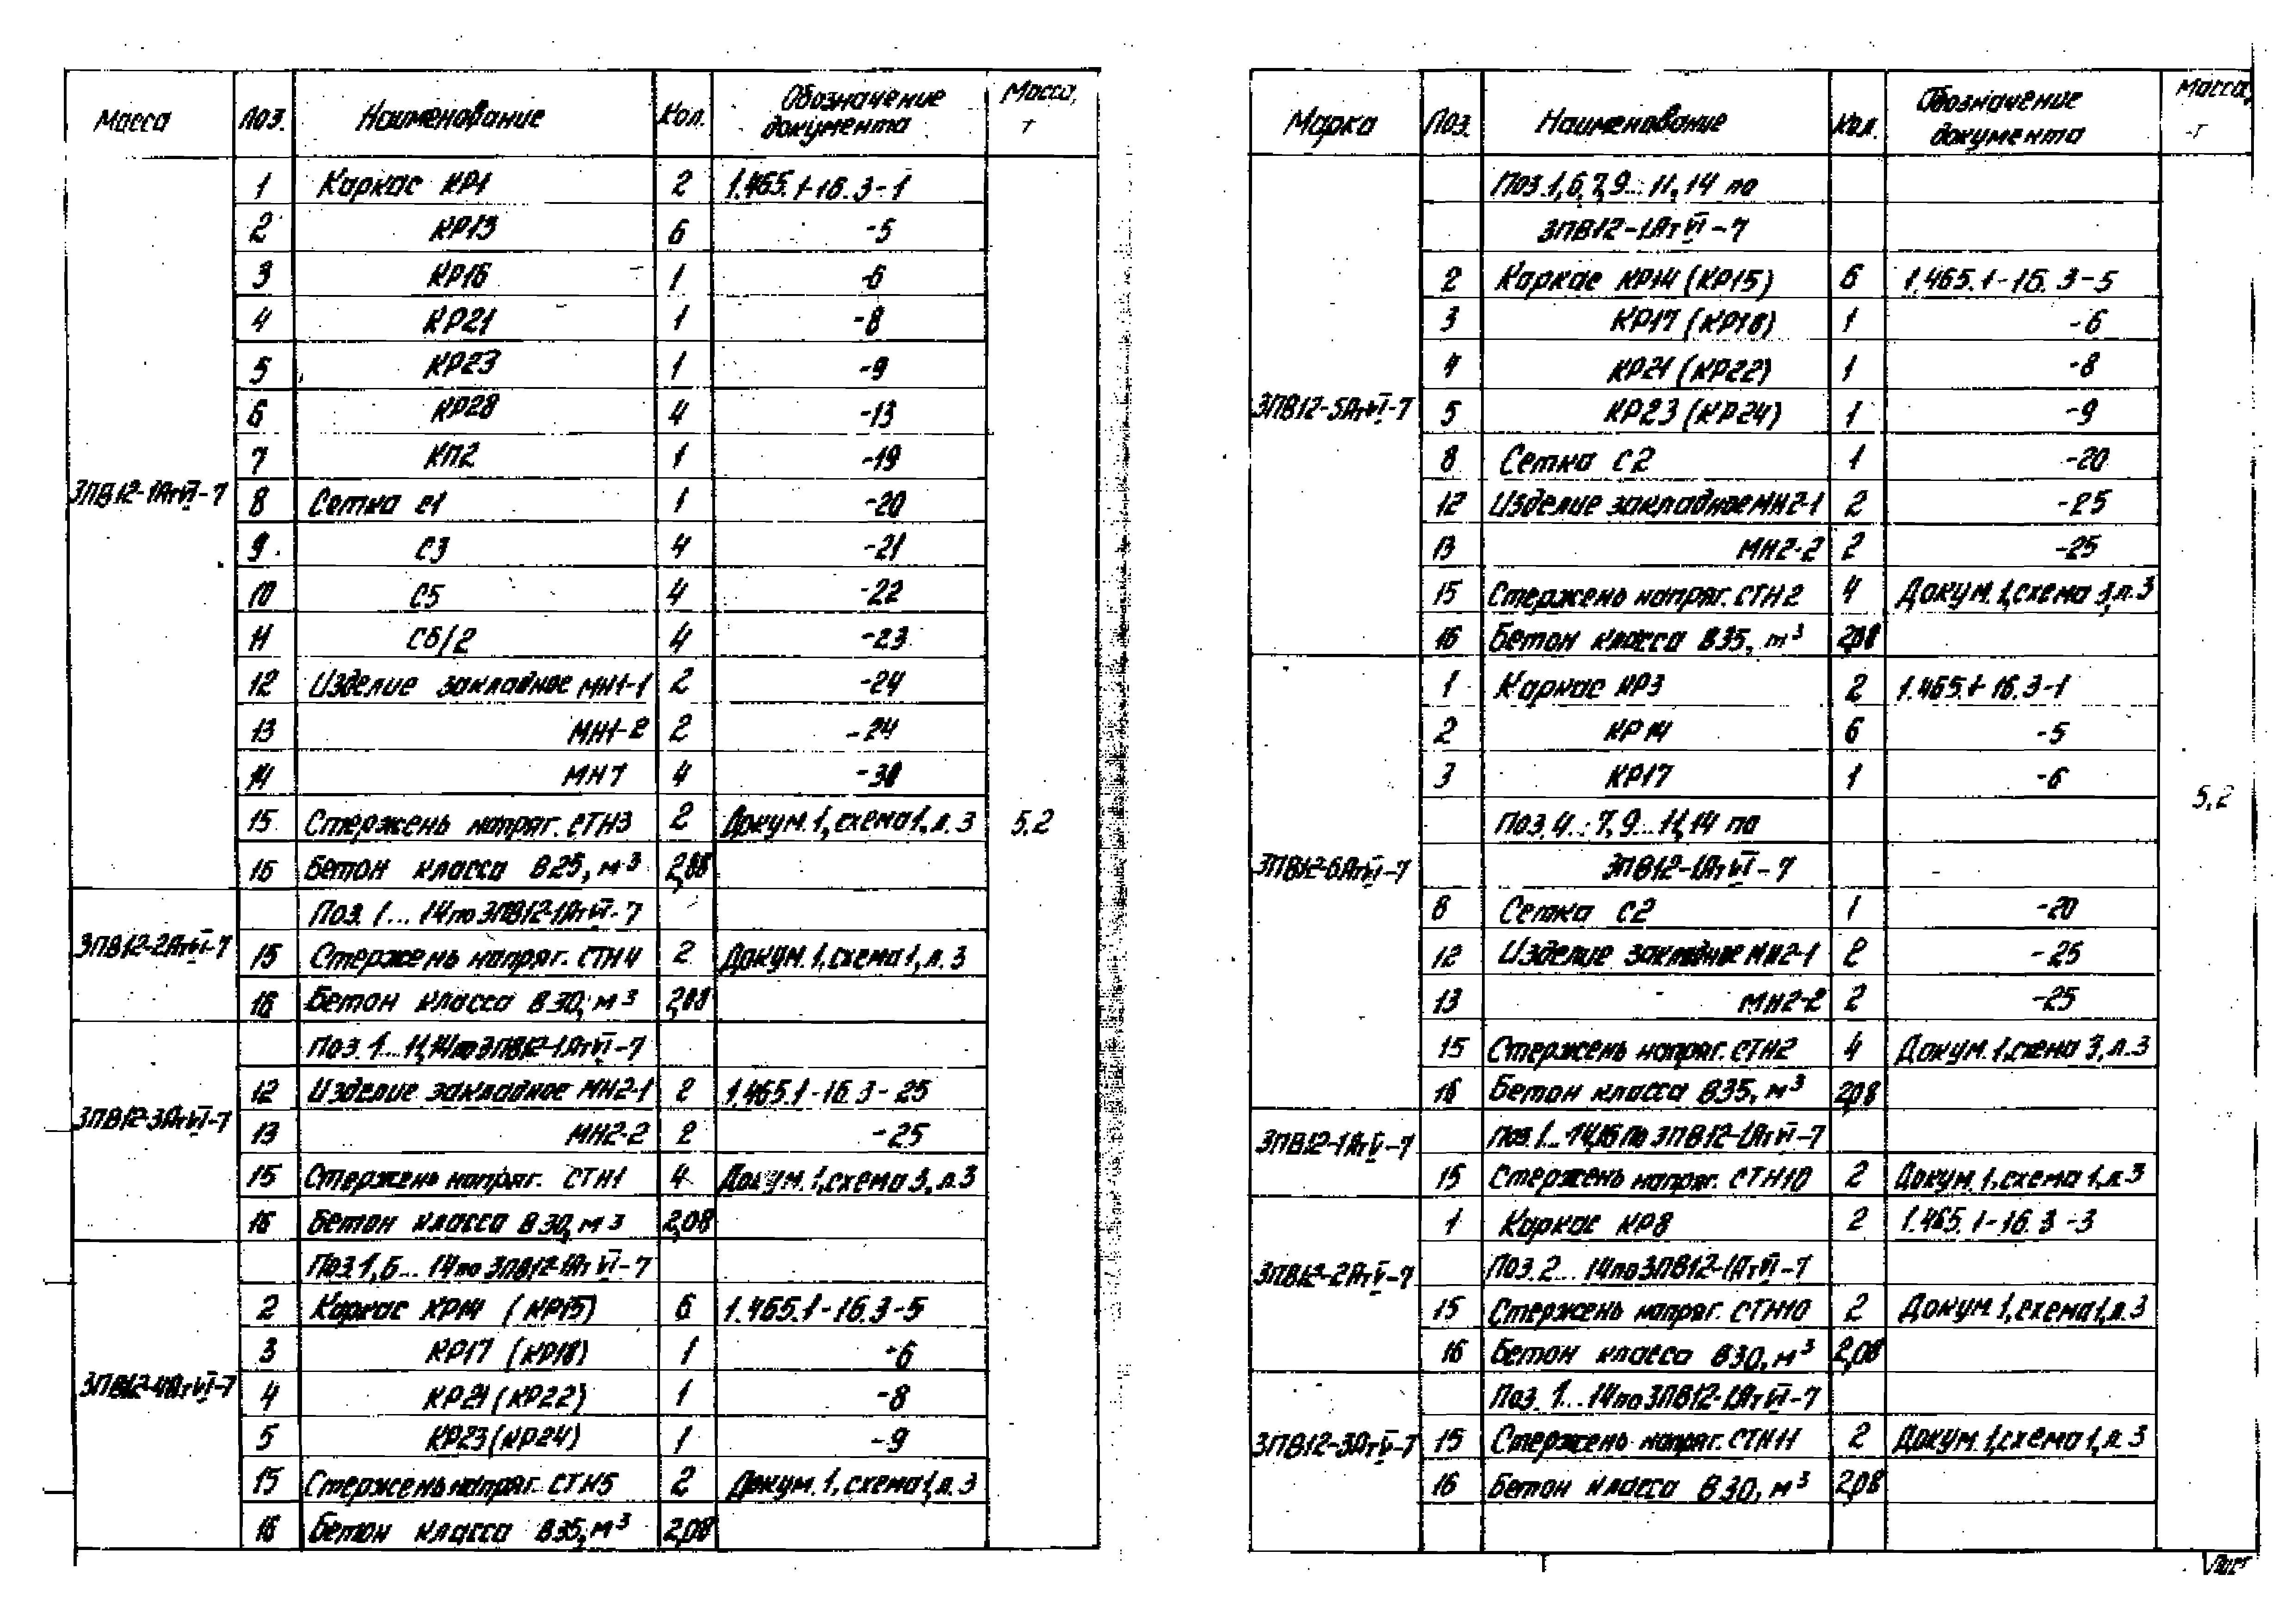 Масса Поз. Наименование Кол. Обозначение документа Масса, т
1 Каркас КР1 2 1.465.1-16.3-1
2 КР13 6 -5
3 КР16 1 -6
4 КР21 1 -8
5 КР23 1 -9
6 КР28 4 -13
7 КП2 1 -19
3ПВ12-1АтVI-7 8 Сетка С1 1 -20
9 С3 4 -21
10 С5 4 -22
11 С6/2 4 -23
12 Изделие закладное МН1-1 2 -24
13 МН1-2 2 -24
14 МН7 4 -30
15 Стержень напряг. СТН3 2 Докум.1, схема1, л.3 5,2
16 Бетон класса В25, м³ 2,08
Поз. 1...14 по 3ПВ12-1АтVI-7
3ПВ12-2АтVI-7 15 Стержень напряг. СТН4 2 Докум.1, схема1, л.3
16 Бетон класса В30, м³ 2,08
Поз. 1...11,14 по 3ПВ12-1АтVI-7
12 Изделие закладное МН2-1 2 1.465.1-16.3-25
3ПВ12-3АтVI-7 13 МН2-2 2 -25
15 Стержень напряг. СТН1 4 Докум.1, схема 3, л.3
16 Бетон класса В30, м³ 2,08
Поз.1,6...14 по 3ПВ12-1АтVI-7
2 Каркас КР14 (КР15) 6 1.465.1-16.3-5
3 КР17 (КР18) 1 -6
3ПВ12-4АтVI-7 4 КР21 (КР22) 1 -8
5 КР23 (КР24) 1 -9
15 Стержень напряг. СТН5 2 Докум.1, схема1, л.3
16 Бетон класса В35, м³ 2,08
Марка Поз. Наименование Кол. Обозначение документа Масса, т
Поз.1,6,7,9...11,14 по
3ПВ12-1АтVI-7
2 Каркас КР14 (КР15) 6 1.465.1-16.3-5
3 КР17 (КР18) 1 -6
4 КР21 (КР22) 1 -8
3ПВ12-5АтVI-7 5 КР23 (КР24) 1 -9
8 Сетка С2 1 -20
12 Изделие закладное МН2-1 2 -25
13 МН2-2 2 -25
15 Стержень напряг. СТН2 4 Докум.1, схема 3, л.3
16 Бетон класса В35, м³ 2,08
1 Каркас КР3 2 1.465.1-16.3-1
2 КР14 6 -5
3 КР17 1 -6
5,2
Поз.4...7,9...11,14 по
3ПВ12-6АтVI-7 3ПВ12-1АтVI-7
8 Сетка С2 1 -20
12 Изделие закладное МН2-1 2 -25
13 МН2-2 2 -25
15 Стержень напряг. СТН2 4 Докум.1, схема 3, л.3
16 Бетон класса В35, м³ 2,08
3ПВ12-1АтV-7 Поз.1...14,16 по 3ПВ12-1АтVI-7
15 Стержень напряг. СТН10 2 Докум.1, схема 1, л.3
1 Каркас КР8 2 1.465.1-16.3-3
3ПВ12-2АтV-7 Поз.2...14 по 3ПВ12-1АтVI-7
15 Стержень напряг. СТН10 2 Докум.1, схема1, л.3
16 Бетон класса В30, м³ 2,08
Поз. 1...14 по 3ПВ12-1АтVI-7
3ПВ12-3АтV-7 15 Стержень напряг. СТН11 2 Докум.1, схема 1, л.3
16 Бетон класса В30, м³ 2,08
Лист